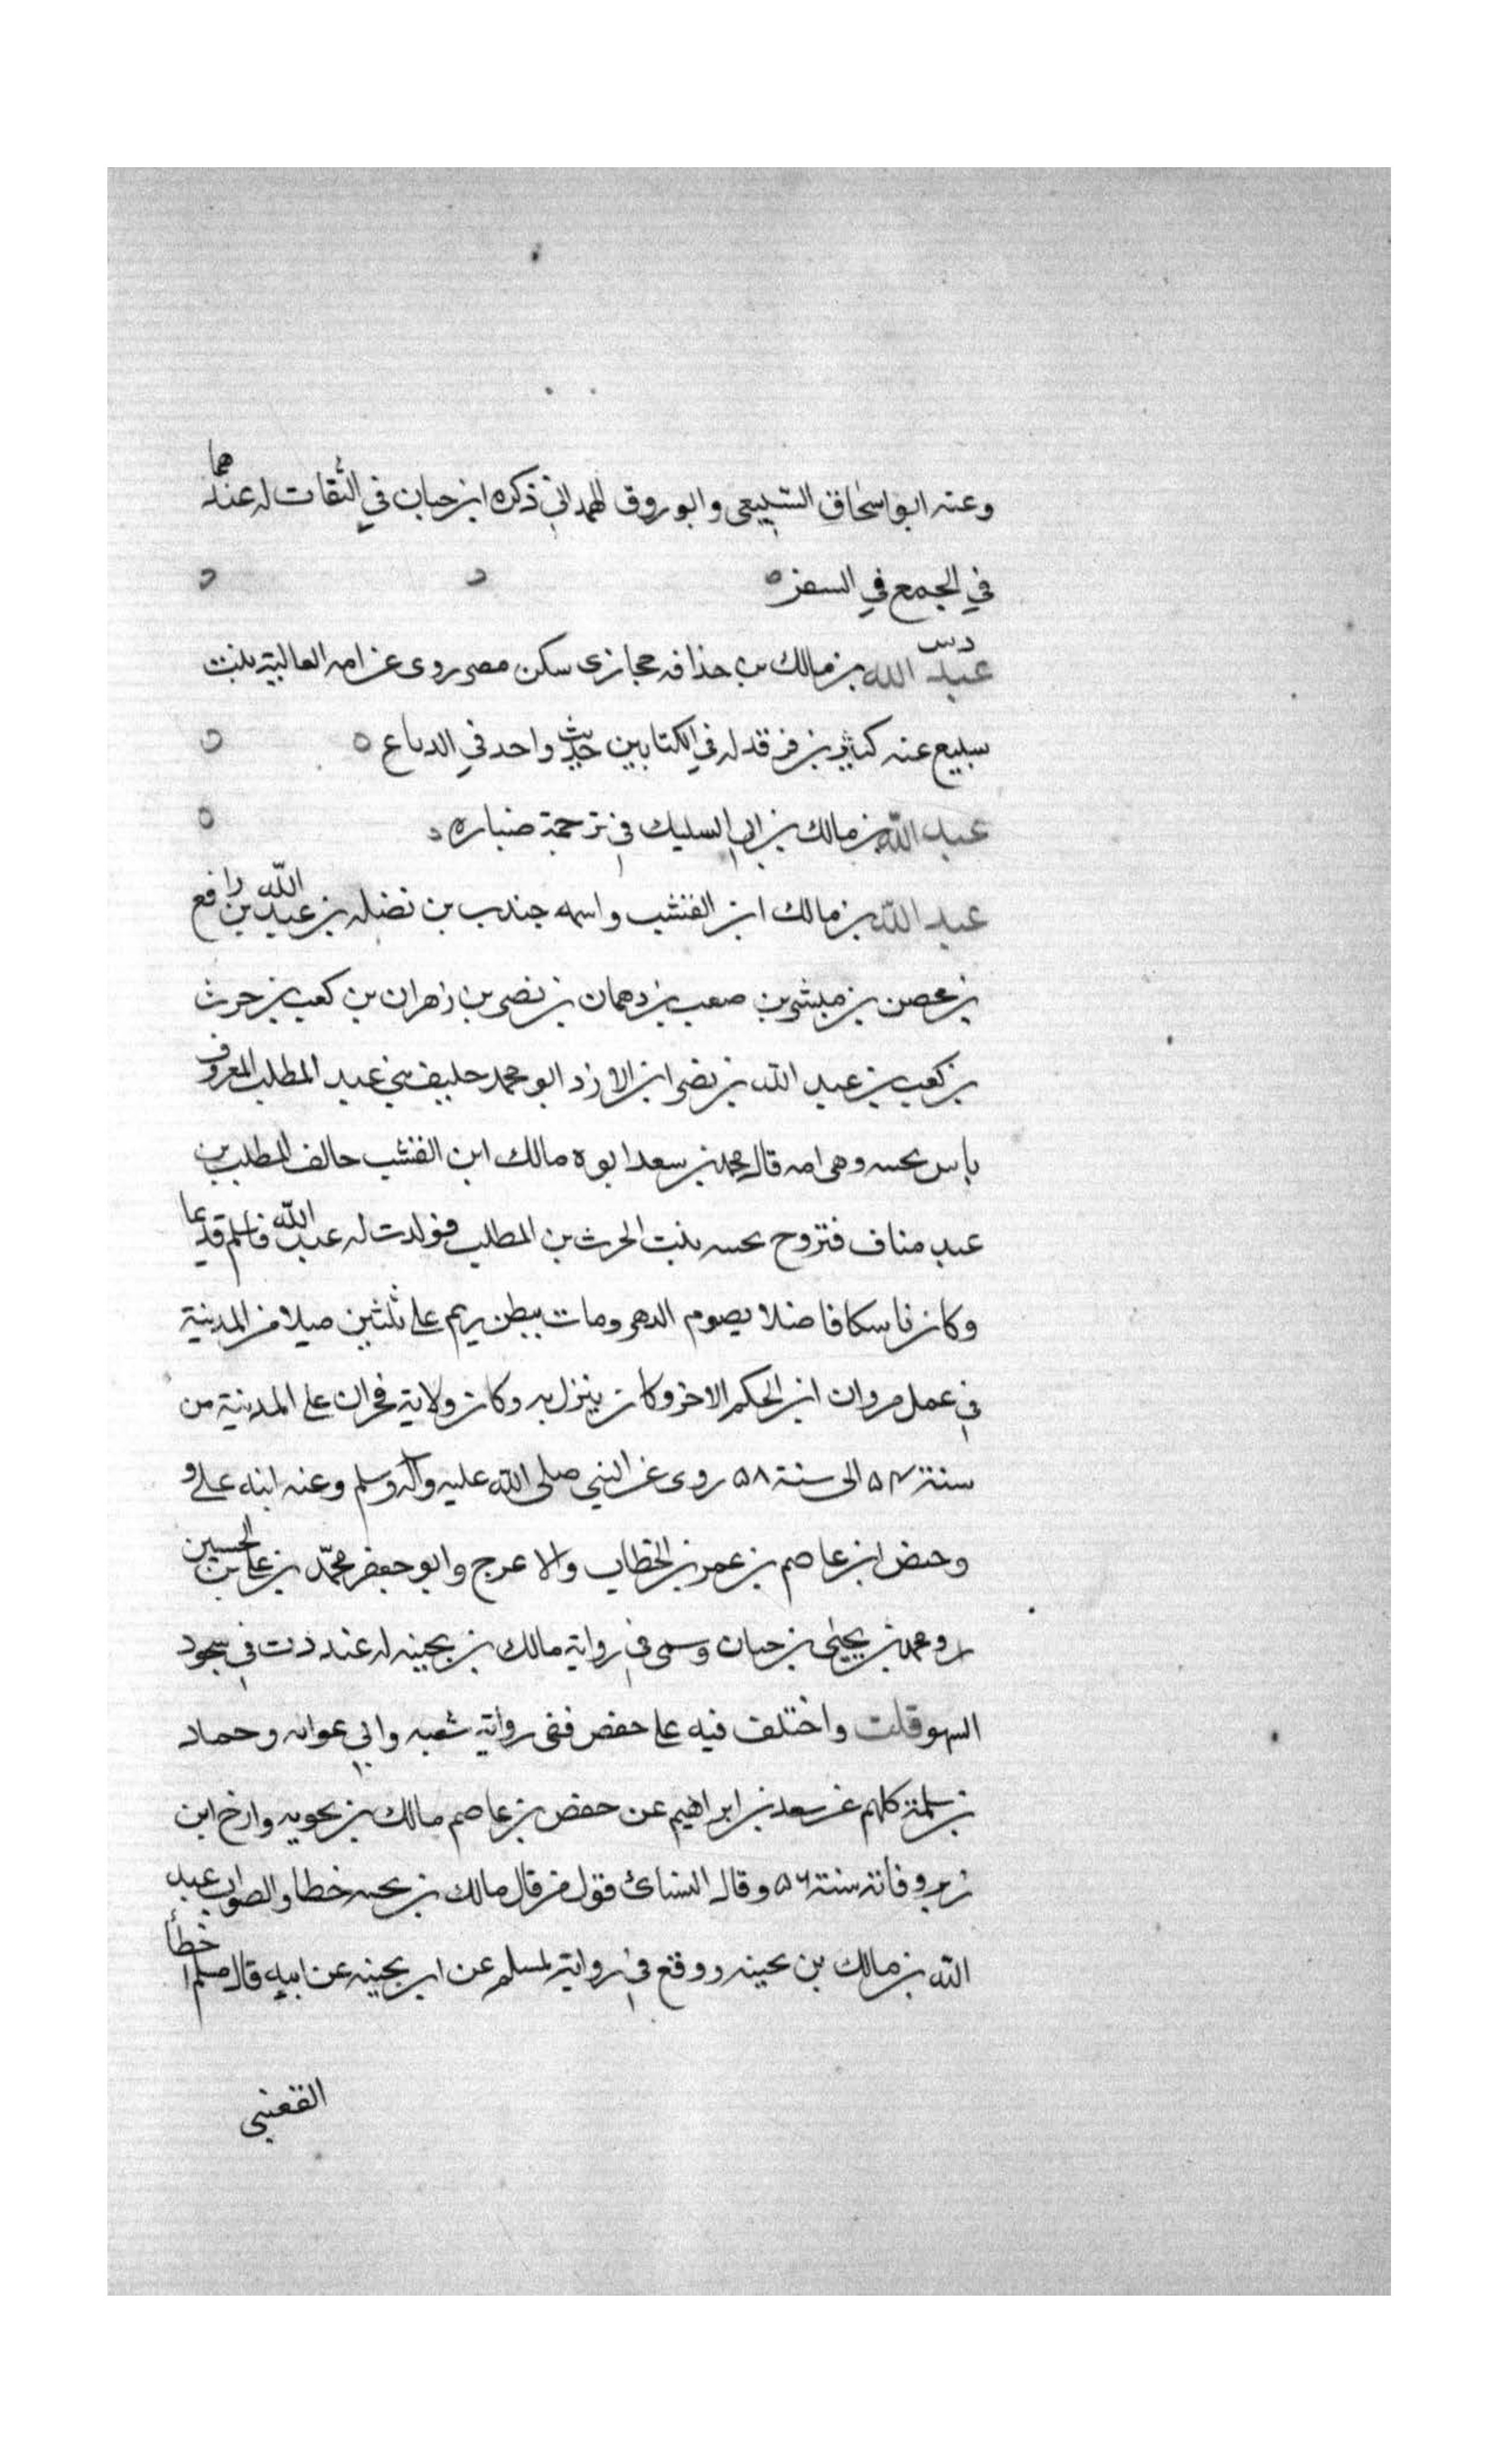 وعنه ابو اسحاق السبيعي وابو روق الهمداني ذكره ابن حبان في الثقات له عندهما
في الجمع في السفر
دس
عبد الله بن مالك بن حذافه حجازي سكن مصر روى عن امه العالية بنت
سبيع عنه كثير بن فرقد له في الكتابين حديث واحد في الدباغ
عبد الله بن مالك بن ابي السليك في ترجمة ضباره
عبد الله بن مالك ابن القشب واسمه جندب بن نضله بن عبد الله بن رافع
بن محصن بن مبشر بن صعب بن دهمان بن نصر بن زهران بن كعب بن حرث
بن كعب بن عبد الله بن نصر ابن الازد ابو محمد حليف بني عبد المطلب المعروف
بابن بحينه وهي امه قال محمد بن سعد ابوه مالك ابن القشب حالف المطلب بن
عبد مناف فتزوج بحينه بنت الحرث بن المطلب فولدت له عبد الله فاسلم قديما
وكان ناسكا فاضلا يصوم الدهر ومات ببطن ريم على ثلثين ميلا من المدينة
في عمل مروان ابن الحكم الاخر وكان ينزل به وكان ولاية مروان على المدينة من
سنة ٥٤ الى سنة ٥٨ روى عن النبي صلى الله عليه وآله وسلم وعنه ابنه علي و
وحفص ابن عاصم بن عمر بن الخطاب والاعرج وابو جعفر محمد بن علي بن الحسين
ومحمد بن يحيى بن حبان وسمى في رواية مالك بن بحينه له عند دت في سجود
السهو قلت واختلف فيه على حفص ففي رواية شعبه وابي عوانه وحماد
بن سلمة كلهم عن سعد بن ابراهيم عن حفص بن عاصم مالك بن بحينه وارخ ابن
زبر وفاته سنة ٥٦ وقال النسائي قول من قال مالك بن بحينه خطا والصواب عبد
الله بن مالك بن بحينه ووقع في رواية لمسلم عن ابن بحينه عن ابيه قال مسلم اخطأ
القعنبي